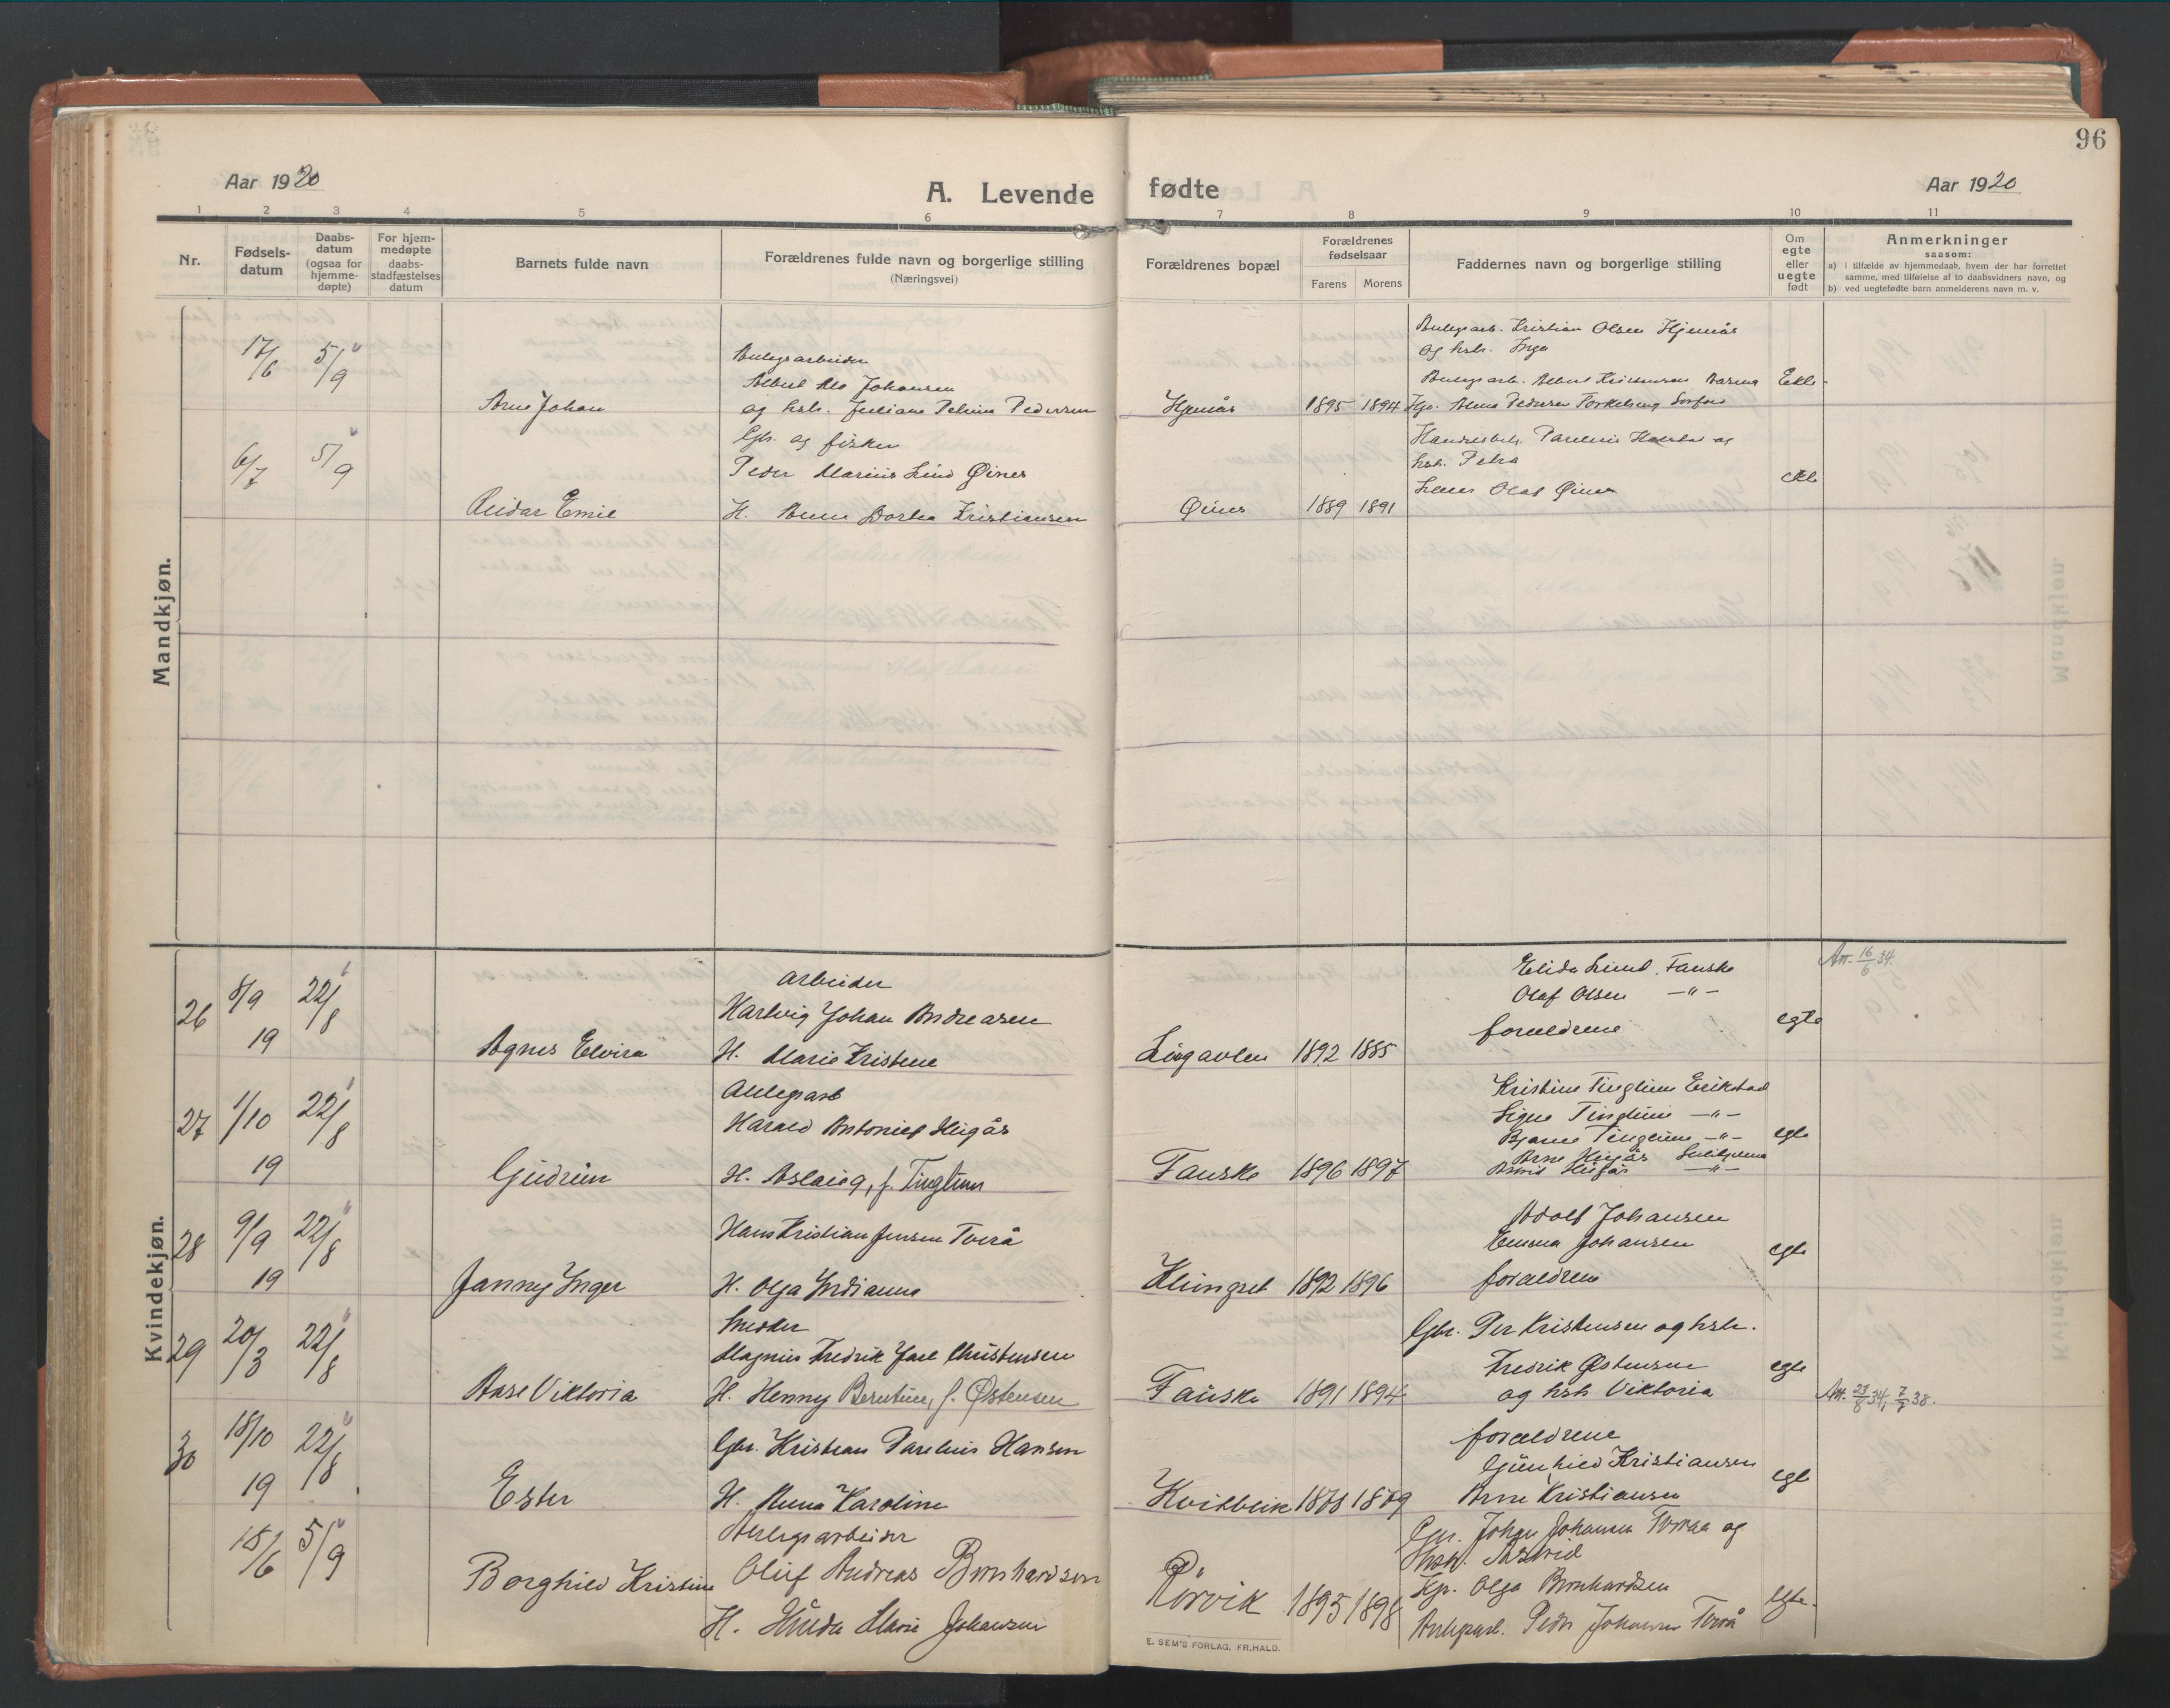 96
Aar 1920
A. Levende fødte
Aar 1920
1 2 3 4 5 6 7 8 9 10 11
Nr.
Fødsels-
datum
Daabs-
datum
(ogsaa for
hjemme-
døpte)
For hjem-
medøpte
daabs-
stadfæstelses
datum
Barnets fulde navn
Forældrenes fulde navn og borgerlige stilling
(Næringsvei)
Forældrenes bopæl
Forældrenes
fødselsaar
Farens Morens
Faddernes navn og borgerlige stilling
Om
egte
eller
uegte
født
Anmerkninger
saasom:
a) i tilfælde av hjemmedaab, hvem der har forrettet
samme, med tilføielse af to daabsvidners navn, og
b) ved uegtefødte barn anmelderens navn m. v.
Mandkjøn.
17/6 5/9
Arne Johan
Anlegsarbeider
Albert Johansen
og hstr. Juliane Pedersen
1895 1894
Anlegsarb. Kristian Olsen Hjemås
og hstr. Inga
Anlegsarb. Albert Kristensen
Pedersen
Ekte
6/7 5/9
Reidar Emil
Gbr. og fisker
Peder Marius Lund Øines
H. Anna Dortea Kristiansen
Øines
1889 1891
hstr. Petra
Olaf Øines
ekte
Kvindekjøn.
26 8/9 19 22/8
Agnes Elvira
Arbeider
Hartvig Johan Andreasen
H. Marie Kristine
1892 1885
Elida Lund, Fauske
Olaf Olsen —"—
forældrene
egte
Att. 16/6 34.
27 1/10 19 22/8
Gudrun
Anlegsarb
Harald Antonius
H. Aslaug, f. Tinglum
Fauske
1896 1897
Kristine Tinglum Erikstad
Signe Tinglum —"—
Bjarne Tinglum —"—
Arne Sulitjelma
—"—
egte
28 9/9 19 22/8
Janny Inger
Hans Kristian Jensen Tverå
H. Olga Indianna
Klungset
1892 1896
Adolf Johansen
Emma Johansen
forældrene
egte
29 20/3 22/8
Aase Viktoria
Smeder
Magnus Fredrik Christensen
H. Henny Berntine, f. Østensen
Fauske
1891 1894
Gbr. Per Kristensen og hstr.
Fredrik Østensen
og hstr Viktoria
egte
Att. 23/8 34, 7/7 38.
30 18/10 19 22/8
Ester
Gbr. Kristian Parelius Hansen
H. Anna Karoline
Kvitblik
forældrene
Gunhild Kristiansen
Arne Kristiansen
egte
18/6 5/9
Borghild Kristine
Anlegsarbeider
Oluf Andreas Bernhardsen
H. Hulda Marie Johansen
Rørvik
1895 1898
Gbr. Johan Johansen Tveraa og
hstr. Astrid
Pp. Olga Bernhardsen
Anlegsarb. Peder Johansen Tverå
Egte.
E. SEM'S FORLAG, FR.HALD.